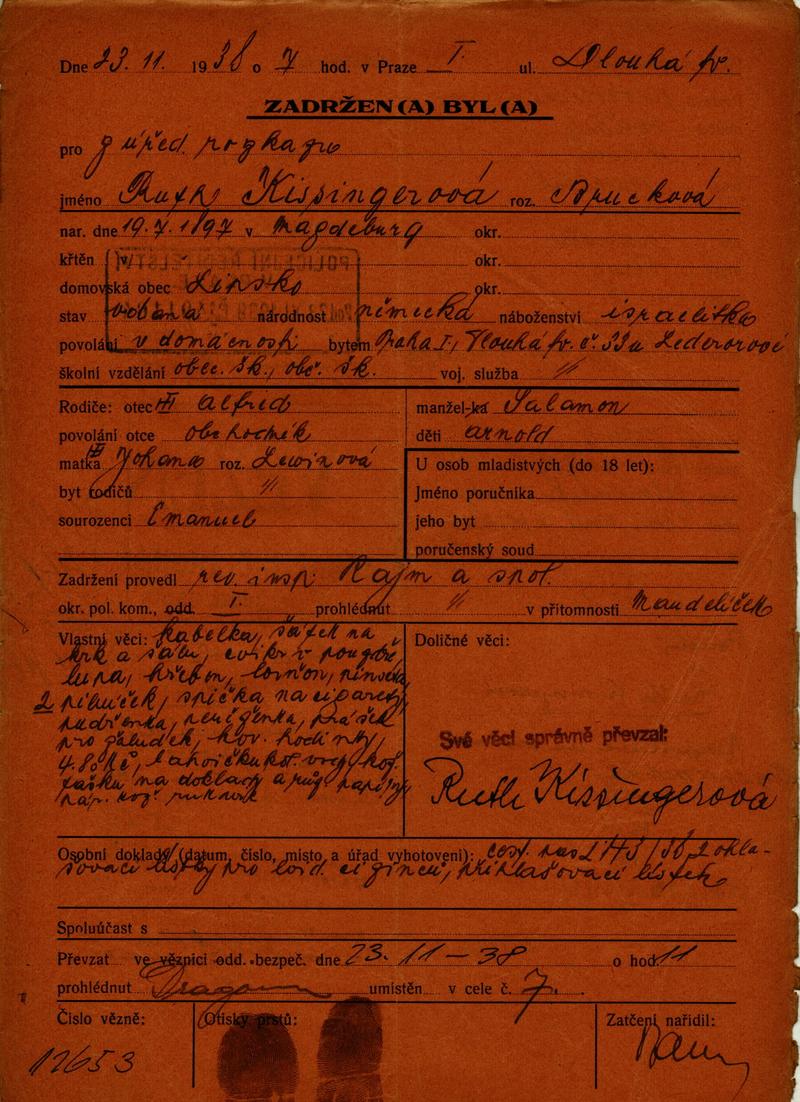 Dne 23. 11. 1938 o 7 hod. v Praze I. ul. Dlouhá tř.
ZADRŽEN(A) BYL(A)
pro z úřed. rozkazu
jméno Ruth Kissingerová roz. Brucková
nar. dne 19.7.1897 v Magdeburg okr.
křtěn v okr.
domovská obec Lipsko okr.
stav vdaná národnost německá náboženství israelitka
povolání v domácnosti bytem Praha I, Dlouhá tř. č. 33 u Ledererové
školní vzdělání obec. šk., obč. šk. voj. služba "
Rodiče: otec Alfred
povolání otce obchodník
matka Johana roz. Lewinová
byt rodičů "
sourozenci Emanuel
manžel-ka Salamon
děti Arnold
U osob mladistvých (do 18 let):
Jméno poručníka
jeho byt
poručenský soud
Zadržení provedl rev. insp. Rajm a spol.
okr. pol. kom., odd. I. prohlédnut " v přítomnosti Mandelíček
Vlastní věci: kabelka, šátek na
krk a šálu, cvikr v pouzdře
lupa, hřeben, lorňon, pinseta
2 pilníček, špička na cigarety
pudřenka, peněženka, prášek
pro žaludek, kov. hodinky,
4.80 Kč, lahvička kol. vody, kož.
tašku na doklady a růz. papíry
pár kož. rukavic
Doličné věci:
Své věci správně převzal:
Ruth Kissingerová
Osobní doklady (datum, číslo, místo a úřad vyhotovení): cest. pas 2 ohla-
šovací lístky pro cizince, přihlašovací lístek
Spoluúčast s
Převzat ve věznici odd. bezpeč. dne 23. 11 - 38 o hod. 11
prohlédnut umístěn v cele č. 7.
Číslo vězně:
12653
Otisky prstů:
Zatčení nařídil: